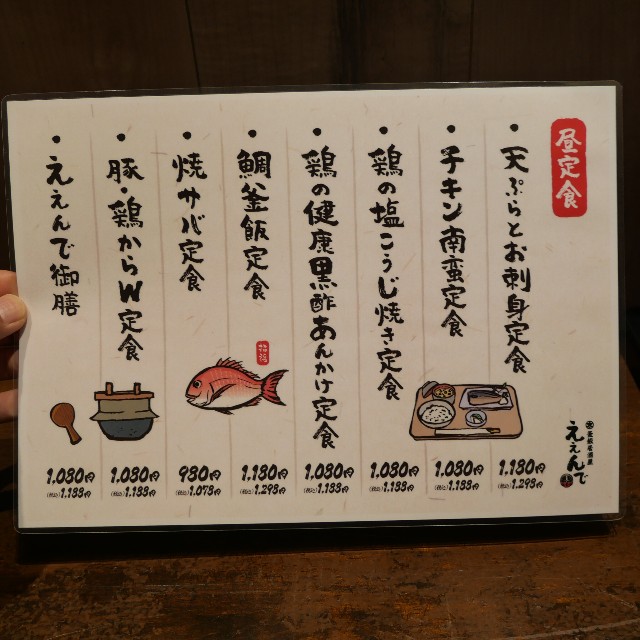 昼定食
・天ぷらとお刺身定食
1.180円
(税込)1.298円
・チキン南蛮定食
1.030円
(税込)1.133円
・鶏の塩こうじ焼き定食
1.030円
(税込)1.133円
・鶏の健康黒酢あんかけ定食
1.030円
(税込)1.133円
・鯛釜飯定食
1.180円
(税込)1.298円
・焼サバ定食
980円
(税込)1.078円
・豚・鶏からW定食
1.030円
(税込)1.133円
・ええんで御膳
1.030円
(税込)1.133円
ええんで